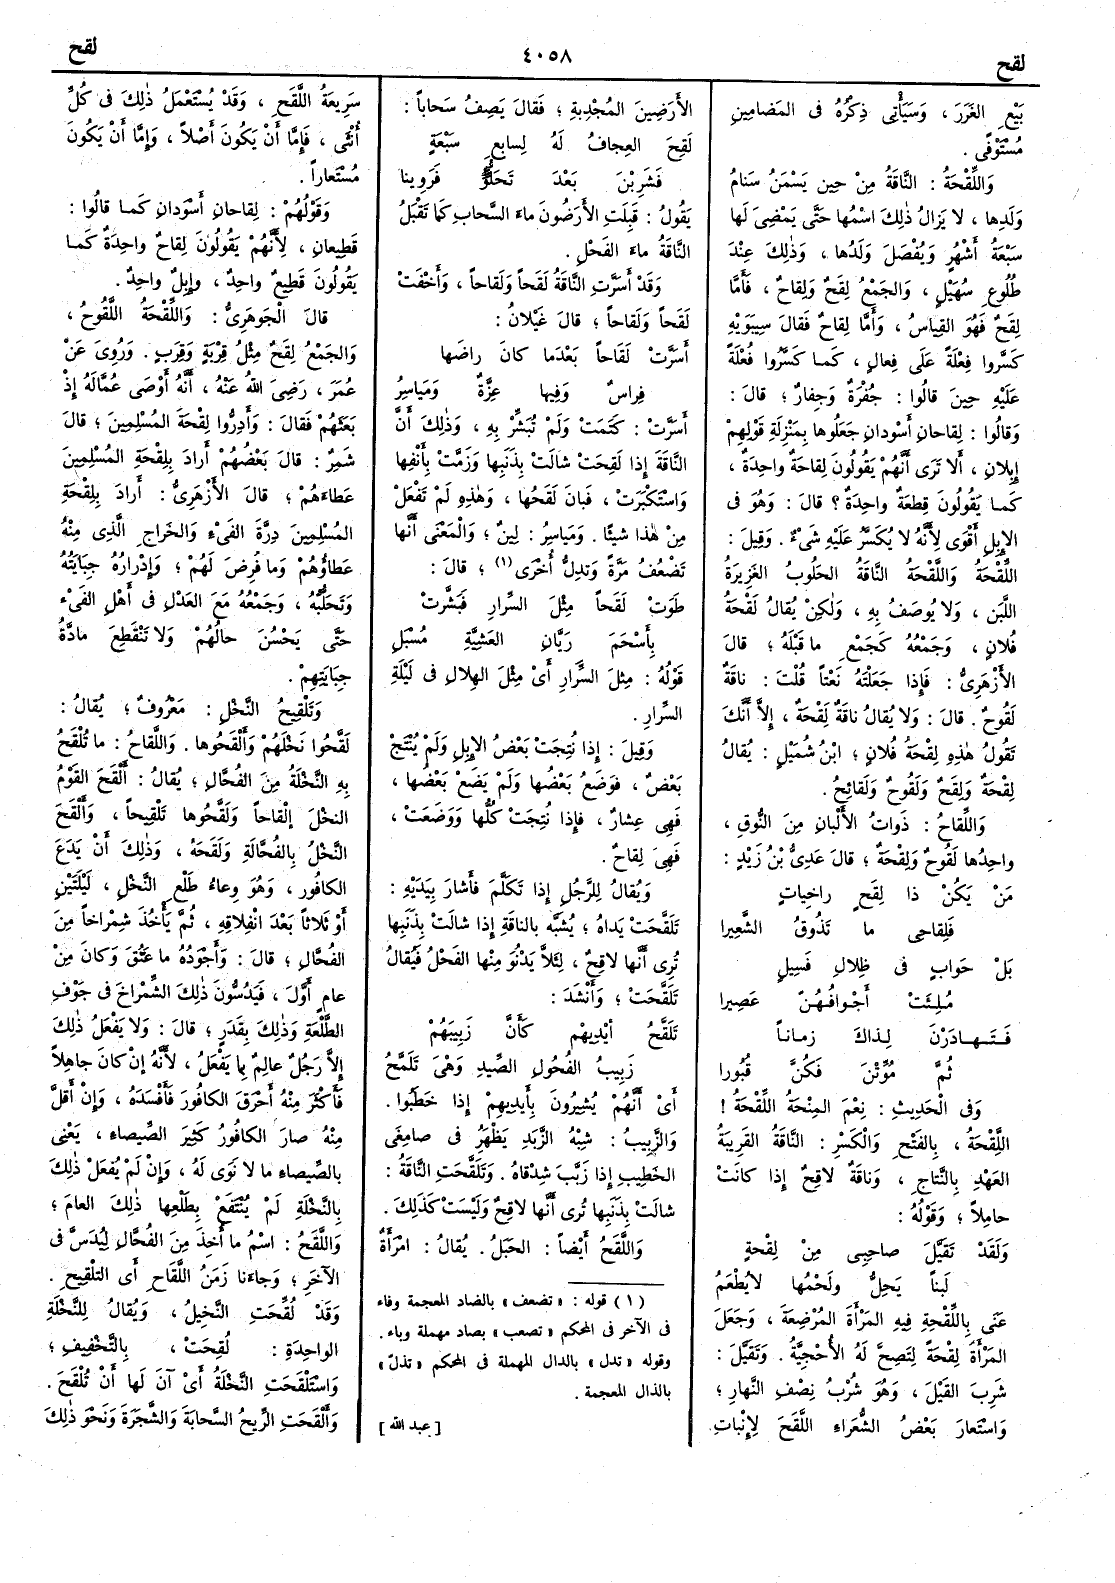 لقح
٤٠٥٨
لقح
بَيْعِ الغَرَرِ ، وَسَيَأْتِى ذِكْرُهُ فى المَضامِينِ
مُسْتَوْفًى .
وَاللِّقْحَةُ : النَّاقَةُ مِنْ حِينِ يَسْمَنُ سَنامُ
وَلَدِها ، لا يَزالُ ذٰلِكَ اسْمُها حَتَّى يَمْضِىَ لَها
سَبْعَةُ أَشْهُرٍ وَيُفْصَلَ وَلَدُها ، وَذٰلِكَ عِنْدَ
طُلُوعِ سُهَيْلٍ ، وَالجَمْعُ لِقَحٌ وَلِقاحٌ ، فَأَمَّا
لِقَحٌ فَهُوَ القِياسُ ، وَأَمَّا لِقاحٌ فَقالَ سِيبَوَيْهِ
كَسَّرُوا فِعْلَةً عَلَى فِعالٍ ، كَمـا كَسَّرُوا فُعْلَةً
عَلَيْهِ حِينَ قالُوا : جُفْرَةٌ وَجِفارٌ ؛ قالَ :
وَقالُوا : لِقاحانِ أَسْودانِ جَعَلُوها بِمَنْزِلَةِ قَوْلِهِمْ
إِبِلانِ ، أَلا تَرَى أَنَّهُمْ يَقُولُونَ لِقاحَةٌ واحِدَةٌ ،
كَمـا يَقُولُونَ قِطعَةٌ واحِدَةٌ ؟ قالَ : وَهُوَ فى
الإِبِلِ أَقْوَى لِأَنَّهُ لا يُكَسَّرُ عَلَيْهِ شَىْءٌ . وَقِيلَ :
اللِّقْحَةُ وَاللَّقْحَةُ النَّاقَةُ الحَلُوبُ الغَزِيرَةُ
اللَّبَنِ ، وَلا يُوصَفُ بِهِ ، وَلٰكِنْ يُقالُ لَقْحَةُ
فُلانٍ ، وَجَمْعُهُ كَجَمْعِ ما قَبْلَهُ ؛ قالَ
الأَزْهَرِىُّ : فَإِذا جَعَلْتَهُ نَعْتاً قُلْتَ : ناقَةٌ
لَقُوحٌ . قالَ : وَلا يُقالُ ناقَةٌ لَِقْحَةٌ ، إِلاَّ أَنَّكَ
تَقُولُ هٰذِهِ لِقْحَةُ فُلانٍ ؛ ابْنُ شُمَيْلٍ : يُقالُ
لِقْحَةٌ وَلِقَحٌ وَلَقُوحٌ وَلَقائِحُ .
وَاللِّقاحُ : ذَواتُ الأَلْبانِ مِنَ النُّوقِ ،
واحِدُها لَقُوحٌ وَلِقْحَةٌ ؛ قالَ عَدِىُّ بْنُ زَيْدٍ :
مَنْ يَكُنْ ذا لِقَحٍ راخِياتٍ
فَلِقاحِى ما تَذُوقُ الشَّعِيرا
بَلْ حَوابٍ فى ظِلالِ فَسِيلٍ
مُلِئَتْ أَجْوافُهُنّ عَصِيرا
فَتَـهـادَرْنَ لِـذاكَ زمـاناً
ثُمَّ مُوِّتْنَ فَكُنَّ قُبُورا
وَفى الْحَدِيثِ : نِعْمَ المِنْحَةُ اللِّقْحَةُ !
اللَّقْحَةُ ، بِالفَتْحِ وَالْكَسْرِ : النَّاقَةُ القَرِيبَةُ
العَهْدِ بِالنَّتاجِ ، وَناقَةٌ لاقِحٌ إِذا كانَتْ
حامِلاً ؛ وَقَوْلُهُ :
وَلَقَدْ تَقَيَّلَ صاحِبِى مِنْ لِقْحَةٍ
لَبَناً يَحِلُّ وَلَحْمُها لايُطْعَمُ
عَنَى بِاللِّقْحَةِ فِيهِ المَرْأَةَ المُرْضِعَةَ ، وَجَعَلَ
المَرْأَةَ لِقْحَةً لِتَصِحَّ لَهُ الأُحْجِيَّةُ . وَتَقَيَّلَ :
شَرِبَ القَيْلَ ، وَهُوَ شُرْبُ نِصْفِ النَّهارِ ؛
وَاسْتَعارَ بَعْضُ الشُّعَراءِ اللَّقَحَ لِإِنْباتِ
الأَرَضِينَ المُجْدِبَةِ ؛ فَقالَ يَصِفُ سَحاباً :
لَقِحَ العِجافُ لَهُ لِسابِعِ سَبْعَةٍ
فَشَرِبْنَ بَعْدَ تَحَلُّؤٍ فَرَوِينا
يَقُولُ : قَبِلَتِ الأَرَضُونَ ماءَ السَّحابِ كَما تَقْبَلُ
النَّاقَةُ ماءَ الفَحْلِ .
وَقَدْ أَسَرَّتِ النَّاقَةُ لَقَحاً وَلَقاحاً ، وَأَخْفَتْ
لَقَحاً وَلَقاحاً ؛ قالَ غَيْلانُ :
أَسَرَّتْ لَقاحاً بَعْدَما كانَ راضَها
فِراسٌ وَفِيها عِزَّةٌ وَمَياسِرُ
أَسَرَّتْ : كَتَمَتْ وَلَمْ تُبَشِّرْ بِهِ ، وَذٰلِكَ أَنَّ
النَّاقَةَ إِذا لَقِحَتْ شالَتْ بِذَنَبِها وَزَمَّتْ بِأَنْفِها
وَاسْتَكْبَرَتْ ، فَبانَ لَقَحُها ، وَهٰذِهِ لَمْ تَفْعَلْ
مِنْ هٰذا شيئًا . وَمَياسِرُ : لِينٌ ؛ وَالْمَعْنَى أَنَّها
تَضْعُفُ مَرَّةً وَتَدِلُّ أُخْرَى (١) ؛ قالَ :
طَوَتْ لَقَحاً مِثْلَ السِّرارِ فَبَشَّرَتْ
بِأَسْحَمَ رَيَّانِ العَشِيَّةِ مُسْبَلِ
قَوْلُهُ : مِثْلَ السِّرارِ أَىْ مِثْلَ الهِلالِ فى لَيْلَةِ
السِّرارِ .
وَقِيلَ : إِذا نُتِجَتْ بَعْضُ الإِبِلِ وَلَمْ يُنْتَجْ
بَعْضٌ ، فَوَضَعَ بَعْضُها وَلَمْ يَضَعْ بَعْضُها ،
فَهِىَ عِشارٌ ، فَإِذا نُتِجَتْ كُلُّها وَوَضَعَتْ ،
فَهِىَ لِقاحٌ .
وَيُقالُ لِلرَّجُلِ إِذا تَكَلَّمَ فَأَشارَ بِيَدَيْهِ :
تَلَقَّحَتْ يَداهُ ؛ يُشَبَّهُ بِالناقَةِ إِذا شالَتْ بِذَنَبِها
تُرِى أَنَّها لاقِحٌ ، لِئَلاَّ يَدْنُوَ مِنْها الفَحْلُ فَيُقالُ
تَلَقَّحَتْ ؛ وَأَنْشَدَ :
تَلَقَّحُ أَيْدِيهِمْ كَأَنَّ زَبِيبَهُمْ
زَبِيبُ الفُحُولِ الصِّيدِ وَهْىَ تَلَمَّحُ
أَىْ أَنَّهُمْ يُشِيرُونَ بِأَيدِيهِمْ إِذا خَطَبُوا .
وَالزَّبِيبُ : شِبْهُ الزَّبَدِ يَظْهَرُ فى صامِغَىِ
الخَطِيبِ إِذا زَبَّبَ شِدْقاهُ . وَتَلَقَّحَتِ النَّاقَةُ :
شالَتْ بِذَنَبِها تُرِى أَنَّها لاقِحٌ وَلَيْسَتْ كَذٰلِكَ .
وَاللَّقَحُ أَيْضاً : الحَبَلُ . يُقالُ : امْرَأَةٌ
( ١ ) قوله : « تضعف » بالضاد المعجمة وفاء
فى الآخر فى المحكم « تصعب » بصاد مهملة وباء .
وقوله « تدل » بالدال المهملة فى المحكم « تذلّ »
بالذال المعجمة .
[ عبد الله ]
سَرِيعَةُ اللَّقَحِ ، وَقَدْ يُسْتَعْمَلُ ذٰلِكَ فى كُلِّ
أُنْثَى ، فَإِمَّا أَنْ يَكُونَ أَصْلاً ، وَإِمَّا أَنْ يَكُونَ
مُسْتَعاراً .
وَقَوْلُهُمْ : لِقاحانِ أَسْوَدانِ كَمـا قالُوا :
قَطِيعانِ ، لِأَنَّهُمْ يَقُولُونَ لِقاحٌ واحِدَةٌ كَمـا
يَقُولُونَ قَطِيعٌ واحِدٌ ، وإِبِلٌ واحِدٌ .
قالَ الْجَوهَرِىُّ : وَاللِّقْحَةُ اللَّقُوحُ ،
وَالجَمْعُ لِقَحٌ مِثْلُ قِرْبَةٍ وَقِرَبٍ . وَرُوِىَ عَنْ
عُمَرَ ، رَضِىَ اللهُ عَنْهُ ، أَنَّهُ أَوْصَى عُمَّالَهُ إِذْ
بَعَثَهُمْ فَقالَ : وَأَدِرُّوا لِقْحَةَ المُسْلِمِينَ ؛ قالَ
شَمِرٌ : قالَ بَعْضُهُمْ أَرادَ بِلِقْحَةِ المُسْلِمِينَ
عَطاءَهُمْ ؛ قالَ الأَزْهَرِىُّ : أَرادَ بِلِقْحَةِ
المُسْلِمِينَ دِرَّةَ الفَىْءِ وَالخَراجِ الَّذِى مِنْهُ
عَطاؤُهُمْ وَما فُرِضَ لَهُمْ ؛ وَإِدْرارُهُ جِبايَتُهُ
وَتَحَلُّبُهُ ، وَجَمْعُهُ مَعَ العَدْلِ فى أَهْلِ الفَىْءِ
حَتَّى يَحْسُنَ حالُهُمْ وَلا تَنْقَطِعَ مادَّةُ
جِبايَتِهِمْ .
وَتَلْقِيحُ النَّخْلِ : مَعْرُوفٌ ؛ يُقالُ :
لَقَّحُوا نَخْلَهُمْ وَأَلْقَحُوها . وَاللَّقاحُ : ما تُلْقَحُ
بِهِ النَّخْلَةُ مِنَ الفُحَّالِ ؛ يُقالُ : أَلْقَحَ القَوْمُ
النخْلَ إِلْقاحاً وَلَقَّحُوها تَلْقِيحاً ، وَأَلْقَحَ
النَّخْلُ بِالفُحَّالَةِ وَلَقَحَهُ ، وَذٰلِكَ أَنْ يَدَعَ
الكافُورَ ، وَهُوَ وِعاءُ طَلْعِ النَّخْلِ ، لَيْلَتَيْنِ
أَوْ ثَلاثاً بَعْدَ انْفِلاقِهِ ، ثُمَّ يَأْخُذَ شِمْراخاً مِنَ
الفُحَّالِ ؛ قالَ : وَأَجْوَدُهُ ما عَتُقَ وَكانَ مِنْ
عامِ أَوَّلَ ، فَيَدُسُّونَ ذٰلِكَ الشِّمْراخَ فى جَوْفِ
الطَّلْعَةِ وَذٰلِكَ بِقَدَرٍ ؛ قالَ : وَلا يَفْعَلُ ذٰلِكَ
إِلاَّ رَجُلٌ عالِمٌ بِما يَفْعَلُ ، لأَنَّهُ إِنْ كانَ جاهِلاً
فَأَكْثَرَ مِنْهُ أَحْرَقَ الكافُورَ فَأَفْسَدَهُ ، وَإِنْ أَقَلَّ
مِنْهُ صارَ الكافُورُ كَثِيرَ الصِّيصاءِ ، يَعْنِى
بِالصِّيصاءِ ما لا نَوَى لَهُ ، وَإِنْ لَمْ يُفْعَلْ ذٰلِكَ
بِالنَّخْلَةِ لَمْ يُنْتَفَعْ بِطَلْعِها ذٰلِكَ العامَ ؛
وَاللَّقَحُ : اسْمُ ما أُخِذَ مِنَ الفُحَّالِ لِيُدَسَّ فى
الآخَرِ ؛ وَجاءَنا زَمَنُ اللَّقاحِ أَىِ التلْقِيحِ .
وَقَدْ لُقِّحَتِ النَّخِيلُ ، وَيُقالُ لِلنَّخْلَةِ
الواحِدَةِ : لُقِحَتْ ، بِالتَّخْفِيفِ ؛
وَاسْتَلْقَحَتِ النَّخْلَةُ أَىْ آنَ لَها أَنْ تُلْقَحَ .
وَأَلْقَحَتِ الرِّيحُ السَّحابَةَ وَالشَّجَرَةَ وَنَحْوَ ذٰلِكَ